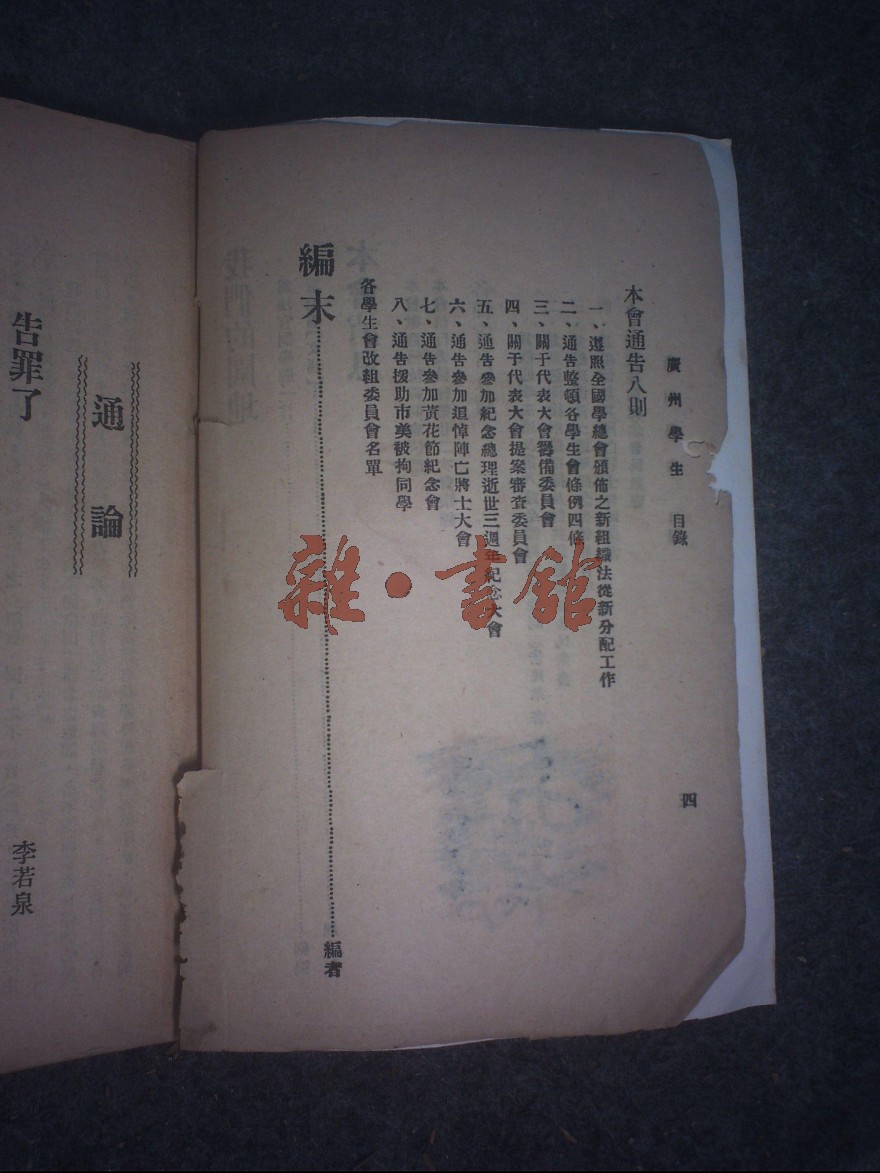 廣州學生 目錄
四
本會通告八則
一、遵照全國學總會頒佈之新組織法從新分配工作
二、通告整頓各學生會條例四條
三、關于代表大會籌備委員會
四、關于代表大會提案審查委員會
五、通告參加紀念總理逝世三週年紀念大會
六、通告參加追悼陣亡將士大會
七、通告參加黃花節紀念會
八、通告援助市美被拘同學
各學生會改組委員會名單
編末……編者
通論
告罪了 李若泉
雜·書館